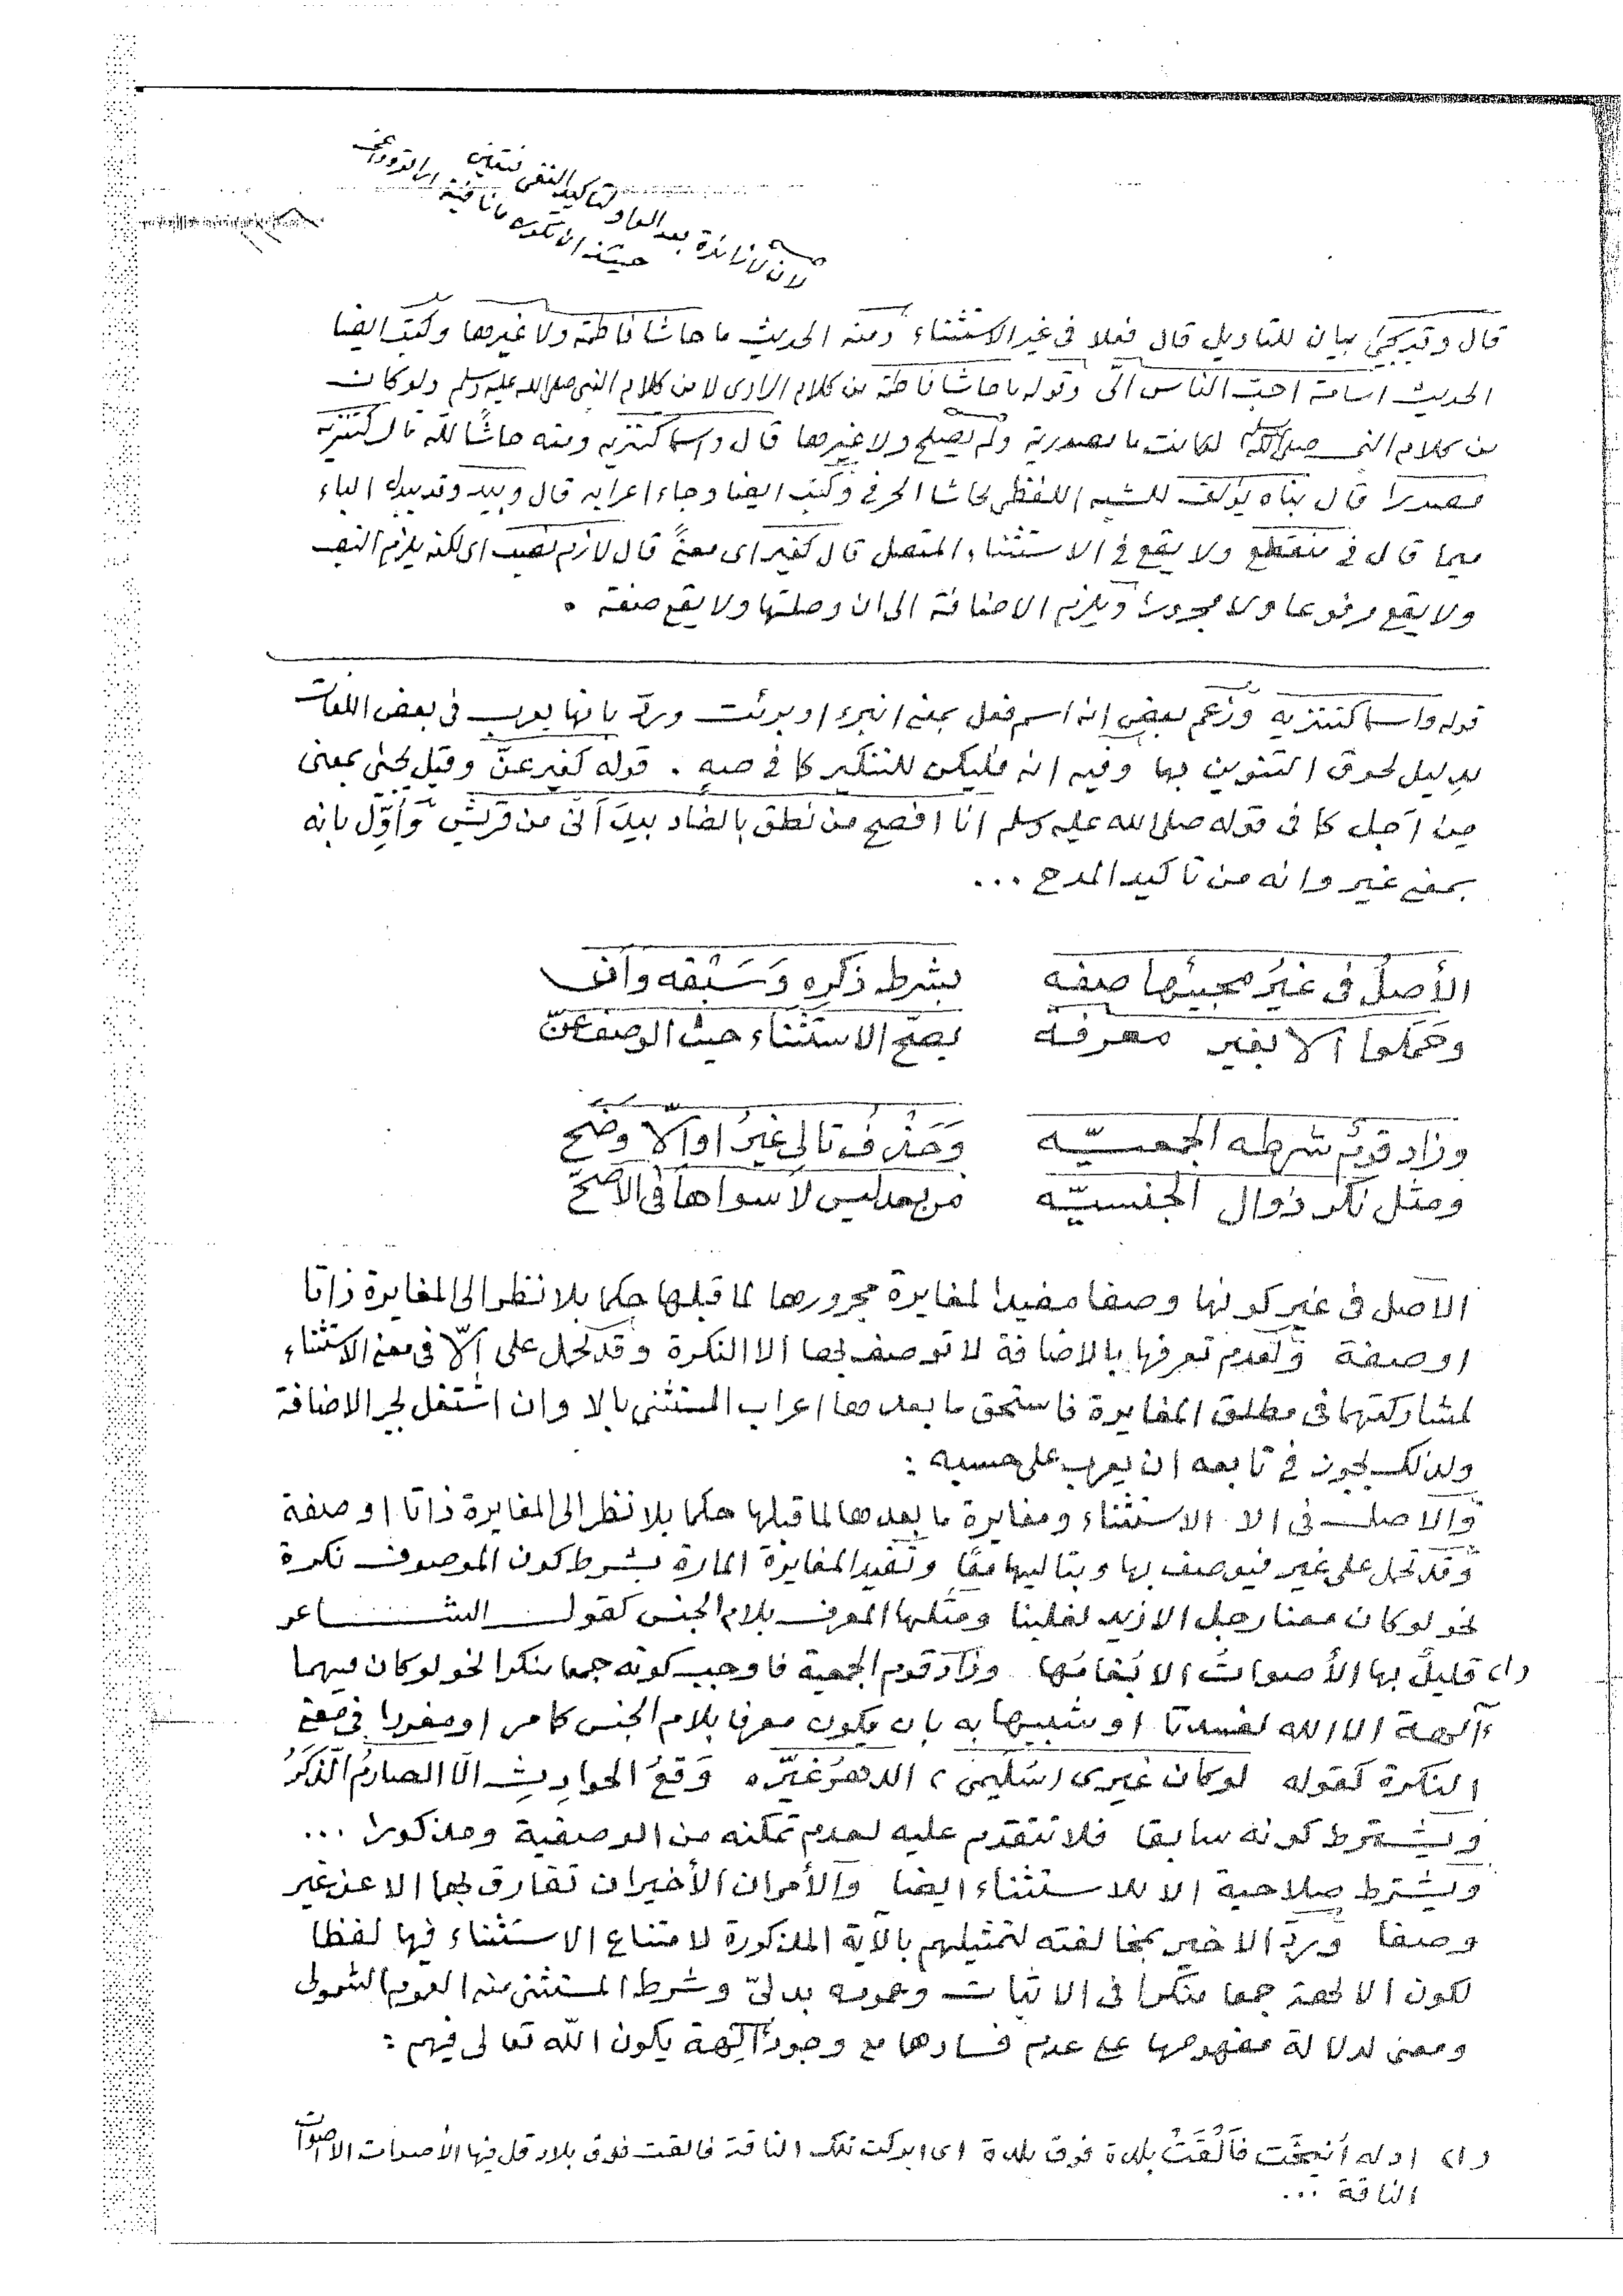 لان لا زائدة بعد الواو لتاكيد النفى فتعين
حينئذ ان تكون ما نافية
قال وقد يجئ بيان للتاويل قال فعلا فى غير الاستثناء ومنه الحديث ما حاشا فاطمة ولا غيرها وكتب ايضا
الحديث اسامة احب الناس الىّ وقوله ما حاشا فاطمة من كلام الراوى لا من كلام النبى صلى الله عليه وسلم ولو كان
من كلام النبى صلى الله لكانت ما مصدرية ولم يصلح ولا غيرها قال واسما كتنزيه ومنه حاشًا لله قال كتنزيه
مصدرا قال بناه يؤلف للشبه اللفظى لحاشا الحرفى وكتب ايضا وجاء اعرابه قال وبيد وقد يبدل الباء
ميما قال فى منقطع ولا يقع فى الاستثناء المتصل قال كغير اى معنًى قال لازم نصب اى لكنه يلزم النصب
ولا يقع مرفوعا ولا مجرورا ويلزم الاضافة الى ان وصلتها ولا يقع صفة .
قوله واسما كتنزيه وزعم بعض انه اسم فعل بمعنى اتبرء او برئت وردّ بانها يعرب فى بعض اللغات
بدليل لحوق التنوين بها وفيه انه فليكن للتنكير كما فى صهٍ . قوله كغير عنّ وقيل يجئ بمعنى
من اجل كما فى قوله صلى الله عليه وسلم انا افصح من نطق بالضاد بيدَ انّى من قريش وأُوّل بانه
بمعنى غير وانه من تاكيد المدح ...
الأصلُ فى غيرُ مجيئها صفه بشرط ذكرِه وَسَبْقه وان
وحَمَلوا الا بغير معرفة يصحّ الاستثناء حيث الوصف عنّ
وزاد قومٌ شرطه الجمعيّه وَحَذْفُ تالى غيرُ او الّا وضح
ومثل نكر ذوال الجنسيّه من بعد ليس لا سواها فى الاصحّ
الاصل فى غير كونها وصفا مفيدا لمغايرة مجرورها لما قبلها حكما بلا نظر الى المغايرة ذاتا
او صفة ولعدم تعرفها بالاضافة لا توصف بها الا النكرة وقد تحمل على الّا فى معنى الاستثناء
لمشاركتهما فى مطلق المغايرة فاستحق ما بعدها اعراب المستثنى بالا وان اشتغل بجر الاضافة
ولذلك يجوز فى تابعه ان يعرب على حسبه :
والاصل فى الا الاستثناء ومغايرة ما بعدها لما قبلها حكما بلا نظر الى المغايرة ذاتا او صفة
وقد تحمل على غير فيوصف بها وبتاليها معًا وتفيد المغايرة المارة بشرط كون الموصوف نكرة
نحو لو كان معنا رجل الا زيد لغلبنا ومثلها المعرف بلام الجنس كقول الشاعر
(١) قليلٌ بها الأصواتُ الا بُغامُها وزاد قوم الجمعية فاوجب كونه جمعا منكرا نحو لو كان فيهما
آلهة الا الله لفسدتا او شبيها به بان يكون معرفا بلام الجنس كما مر او مفردا فى معنى
النكرة كقوله لو كان غيرى (سُلَيمى) الدهرَ غيّره وَقعُ الحوادِثِ الّا الصارمُ الذَكَرُ
ويشترط كونه سابقا فلا تتقدم عليه لعدم تمكنه من الوصفية ومذكورا ...
ويشترط صلاحية الا للاستثناء ايضا والأمران الأخيران تفارق بهما الا عن غير
وصفا وردّ الاخير بمخالفته لتمثيلهم بالآية المذكورة لامتناع الاستثناء فيها لفظا
لكون الالهة جمعا منكرا فى الاثبات وعمومه بدلىّ وشرط المستثنى منه العموم الشمولى
ومعنى لدلالة مفهومها على عدم فسادها مع وجود آلِهة يكون الله تعالى فيهم :
(١) اوله أُنيخَت فَأَلْقَتْ بلدة فوق بلدة اى ابركت تلك الناقة فالقت فوق بلاد قل فيها الأصوات الا اصوات
الناقة ...